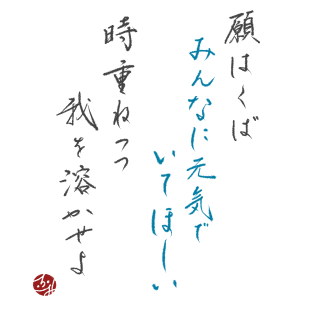 願はくば
みんなに元気で
いてほしい
時重ねつつ
我を溶かせよ